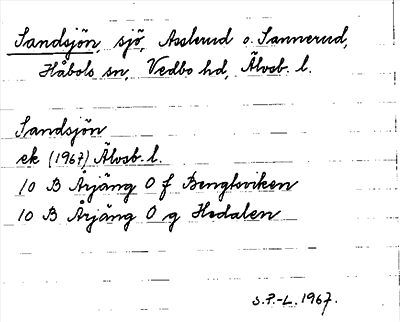 Sandsjön, sjö, Asslerud o. Sannerud,
Håbols sn, Vedbo hd, Älvsb. l.
Sandsjön
ek (1967) Älvsb. l.
10 B Årjäng O f Bengtsviken
10 B Årjäng O g Hedalen
S.P.-L. 1967.